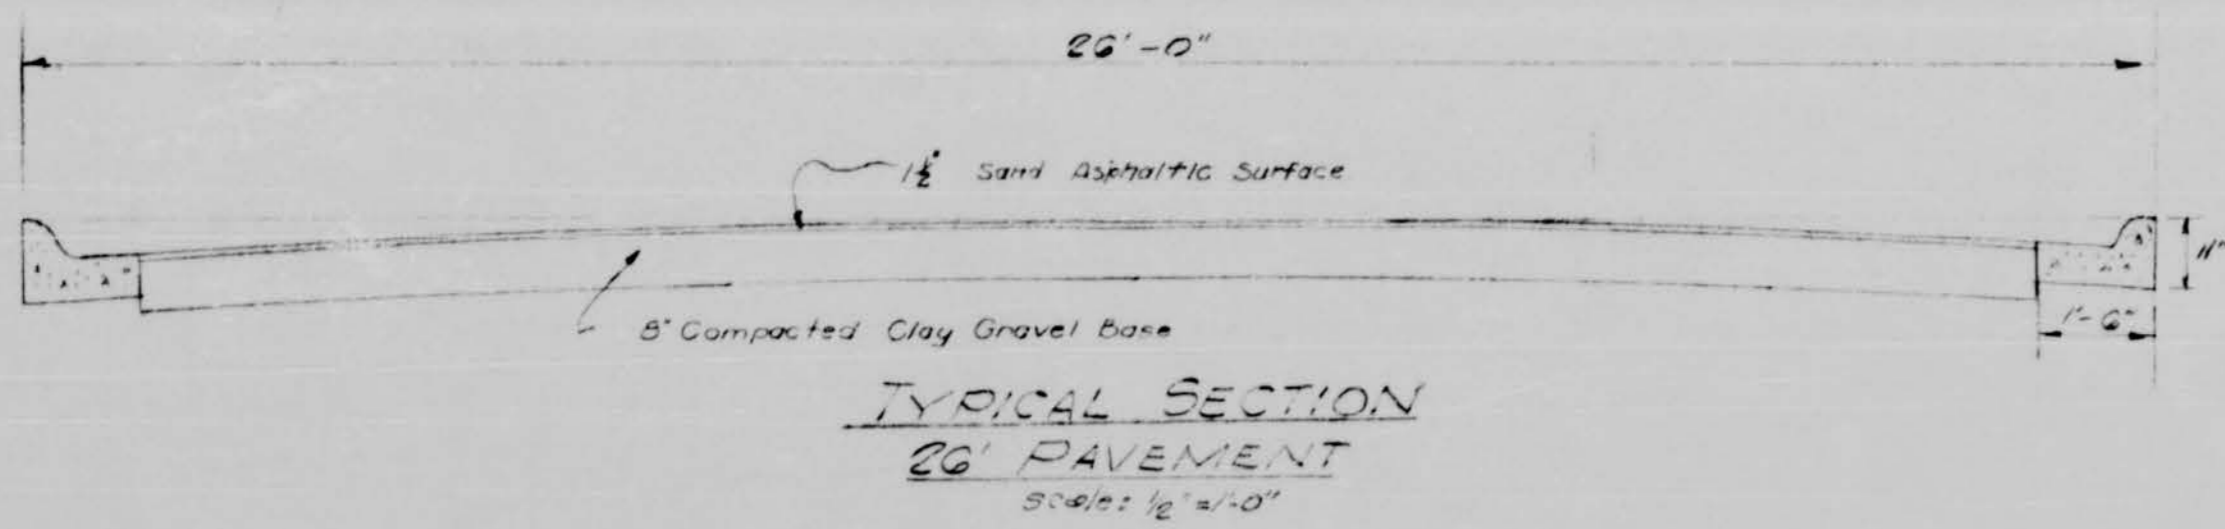 26'-0"
1½" Sand Asphaltic Surface
11"
1'-6"
8" Compacted Clay Gravel Base
TYPICAL SECTION
26' PAVEMENT
scale: 1/2"=1'-0"